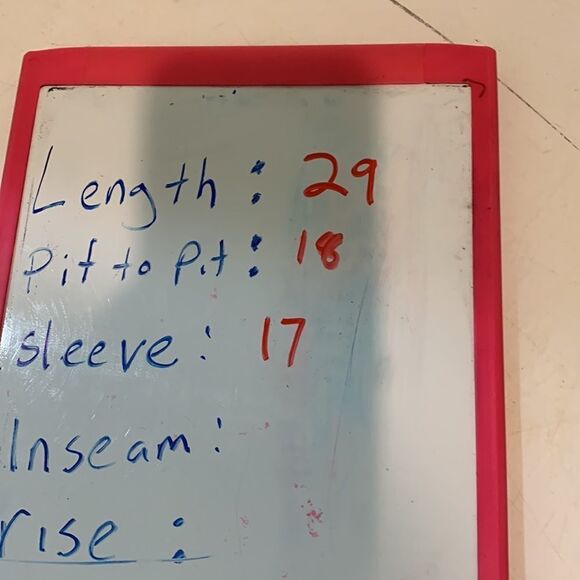 Length: 29
Pit to Pit: 18
sleeve: 17
Inseam:
rise: